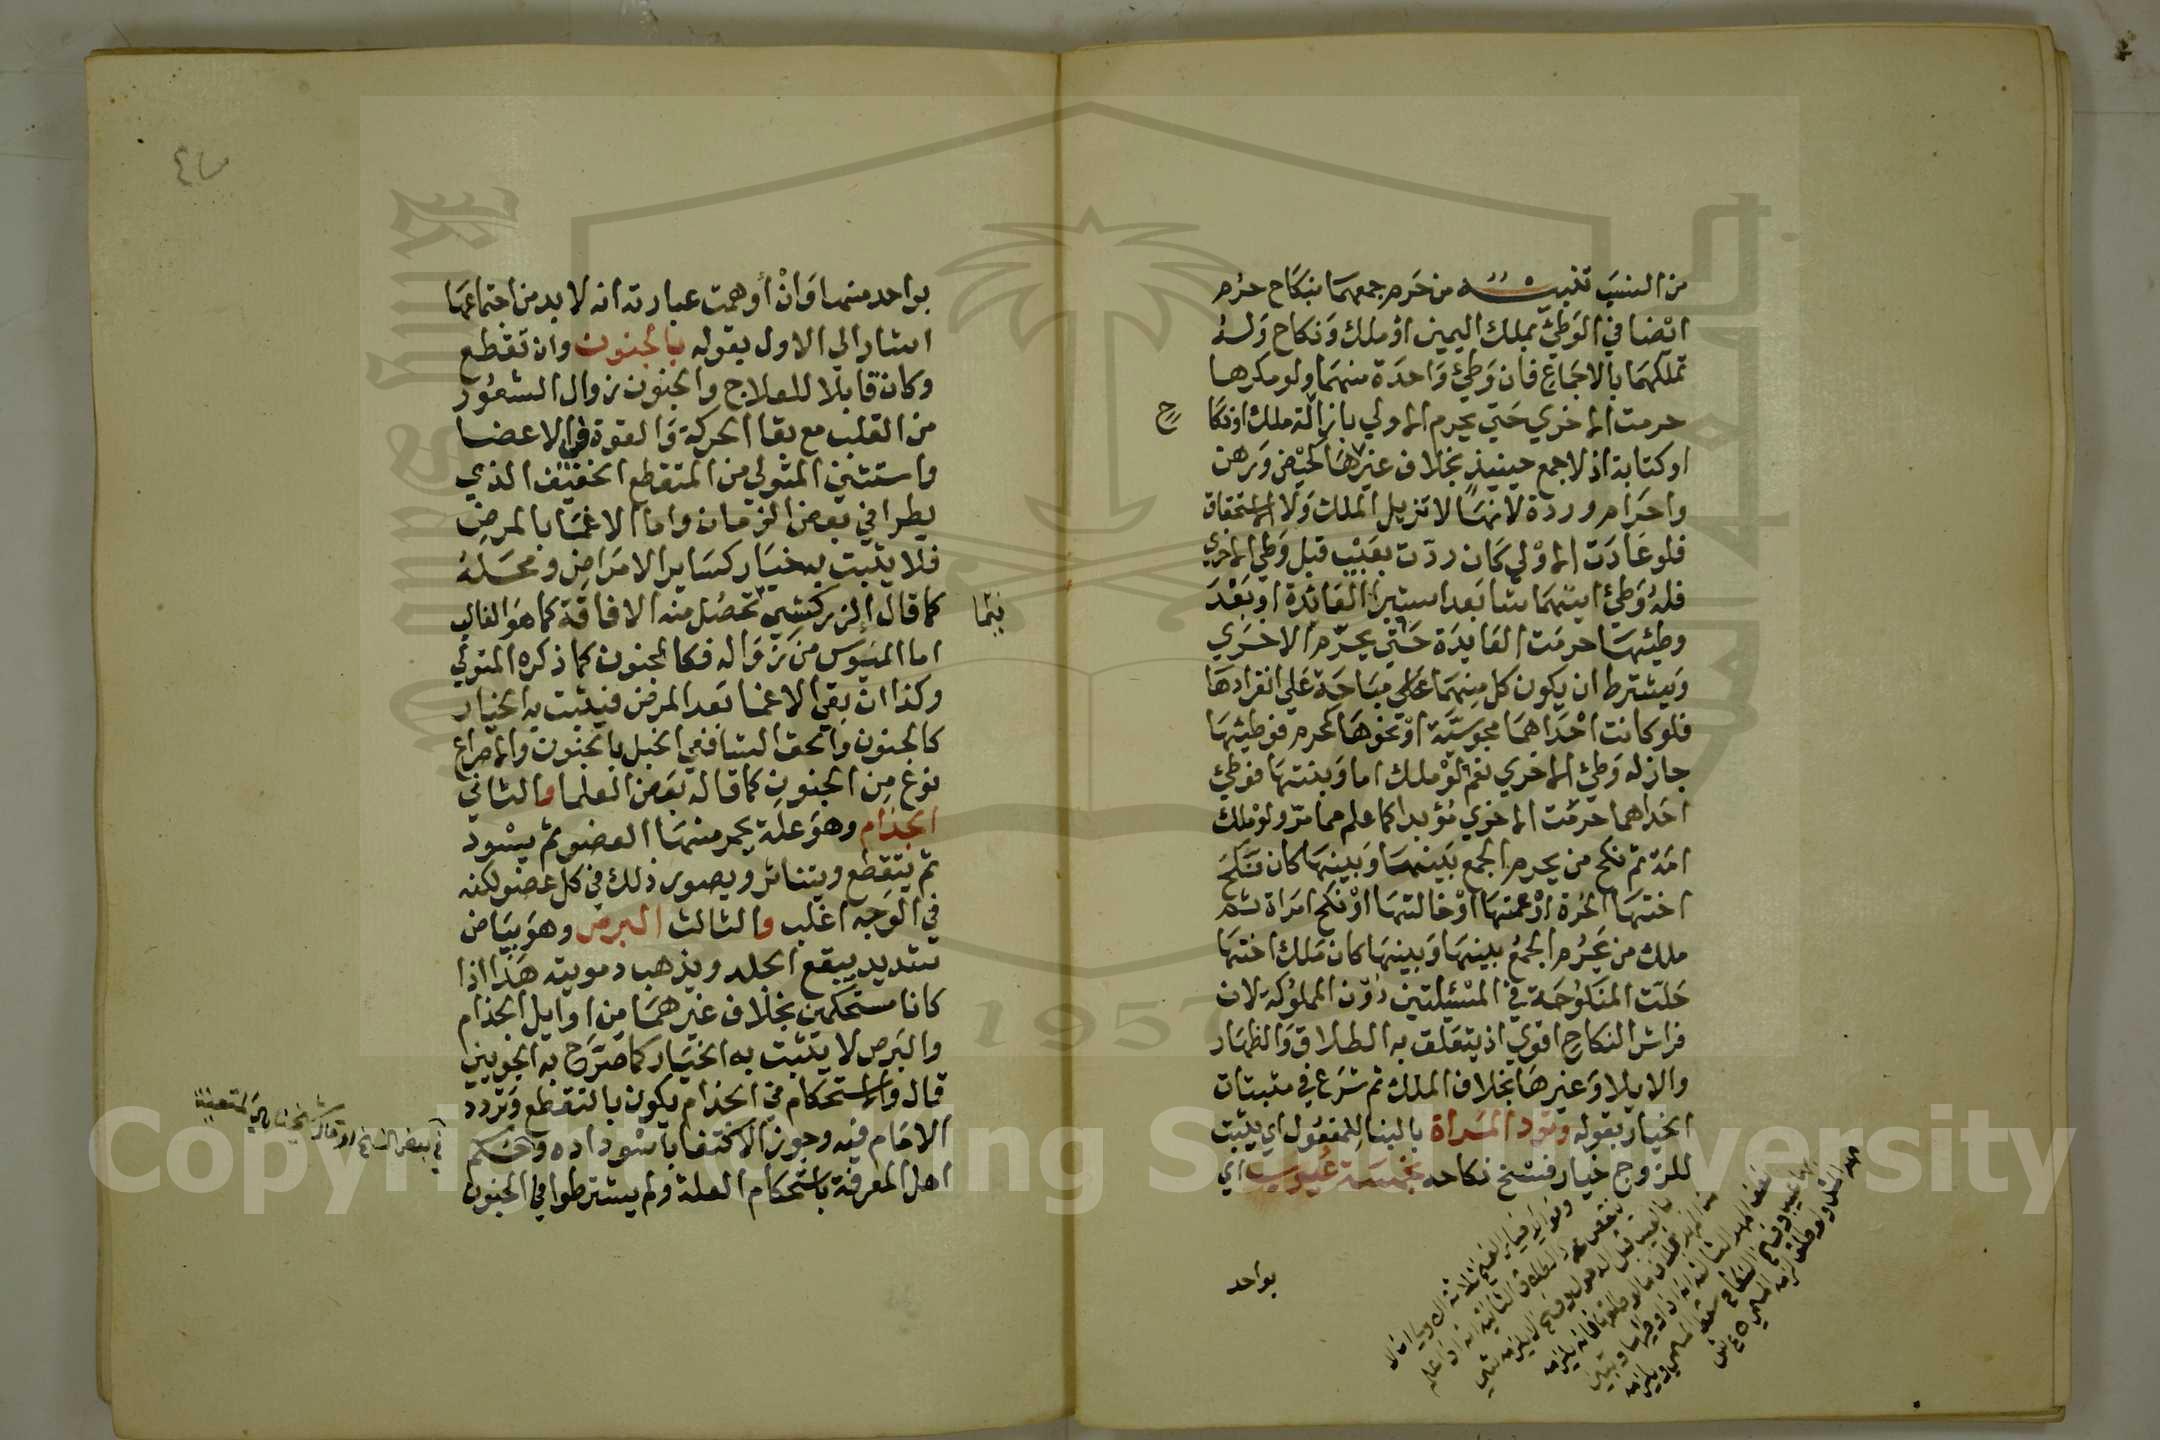 من النسب تنبيه من حرم جمعهما بنكاح حرم
ايضا في الوطئ بملك اليمين او ملك ونكاح وله
تملكهما بالاجماع فان وطئ واحدة منهما ولو مكرها
حرمت الاخري حتي يحرم الاولي بازالة ملك او نكا
ح
او كتابة اذ لا جمع حينيذ بخلاف غيرها كحيض ورهن
واحرام وردة لانها لا تزيل الملك ولا الاستحقاق
فلو عادت الاولي كان ردت بعيب قبل وطي الاخري
فله وطئ ايتهما شا بعد استبرا العائدة او بعد
وطئها حرمت العايدة حتي يحرم الاخري
ويشترط ان يكون كل منهما مباحة علي انفرادها
فلو كانت احداهما مجوسية او نحوها كمحرم فوطئها
جاز له وطئ الاخري نعم لو ملك اما وبنتها فوطئ
احداهما حرمت الاخري مؤبدا كما علم مما مر ولو ملك
امة ثم نكح من يحرم الجمع بينها وبينها كان نكح
اختها الحرة او عمتها او خالتها او نكح امراة ثم
ملك من يحرم الجمع بينها وبينها كان ملك اختها
حلت المنكوحة في المسئلتين دون المملوكة لان
فراش النكاح اقوي اذ يتعلق به الطلاق والظهار
والايلا وغيرها بخلاف الملك ثم شرع في مثبتات
الخيار بقوله وترد المراة بالبنا للمفعول اي يثبت
للزوج خيار فسخ نكاحه بخمسة عيوب اي
بواحد
بواحد منها وان أوهمت عبارته انه لا بد من اجتماعها
اشار الي الاول بقوله بالجنون وان تقطع
وكان قابلا للعلاج والجنون زوال الشعور
من القلب مع بقا الحركة والقوة في الاعضا
واستثني المتولي من المتقطع الخفيف الذي
يطرا في بعض الزمان واما الاغما بالمرض
فلا يثبت به خيار كساير الامراض ومحله
كما قال الزركشي تحصل منه الافاقة كما هو الغالب
فيما
اما الميوس من زواله فكالجنون كما ذكره المتولي
وكذا ان بقي الاغما بعد المرض فيثبت به الخيار
كالجنون والحق الشافعي الخبل بالجنون والاصراع
نوع من الجنون كما قاله بعض العلما والثاني
الجذام وهو علة يحمر منها العضو ثم يسود
ثم يتقطع ويتناثر ويصور ذلك في كل عضو لكنه
في الوجه اغلب والثالث البرص وهو بياض
شديد يبقع الجلد ويذهب دمويته هذا اذا
كانا مستحكمين بخلاف غيرهما من اوايل الجذام
والبرص لا يثبت به الخيار كما صرح به الجويني
قال والاستحكام في الجذام يكون بالتقطع وتردد
الامام فيه وجوز الاكتفا باسوداده وحكم
اهل المعرفة باستحكام العلة ولم يشترطوا في الجنون
1957
Copyright © King Saud University